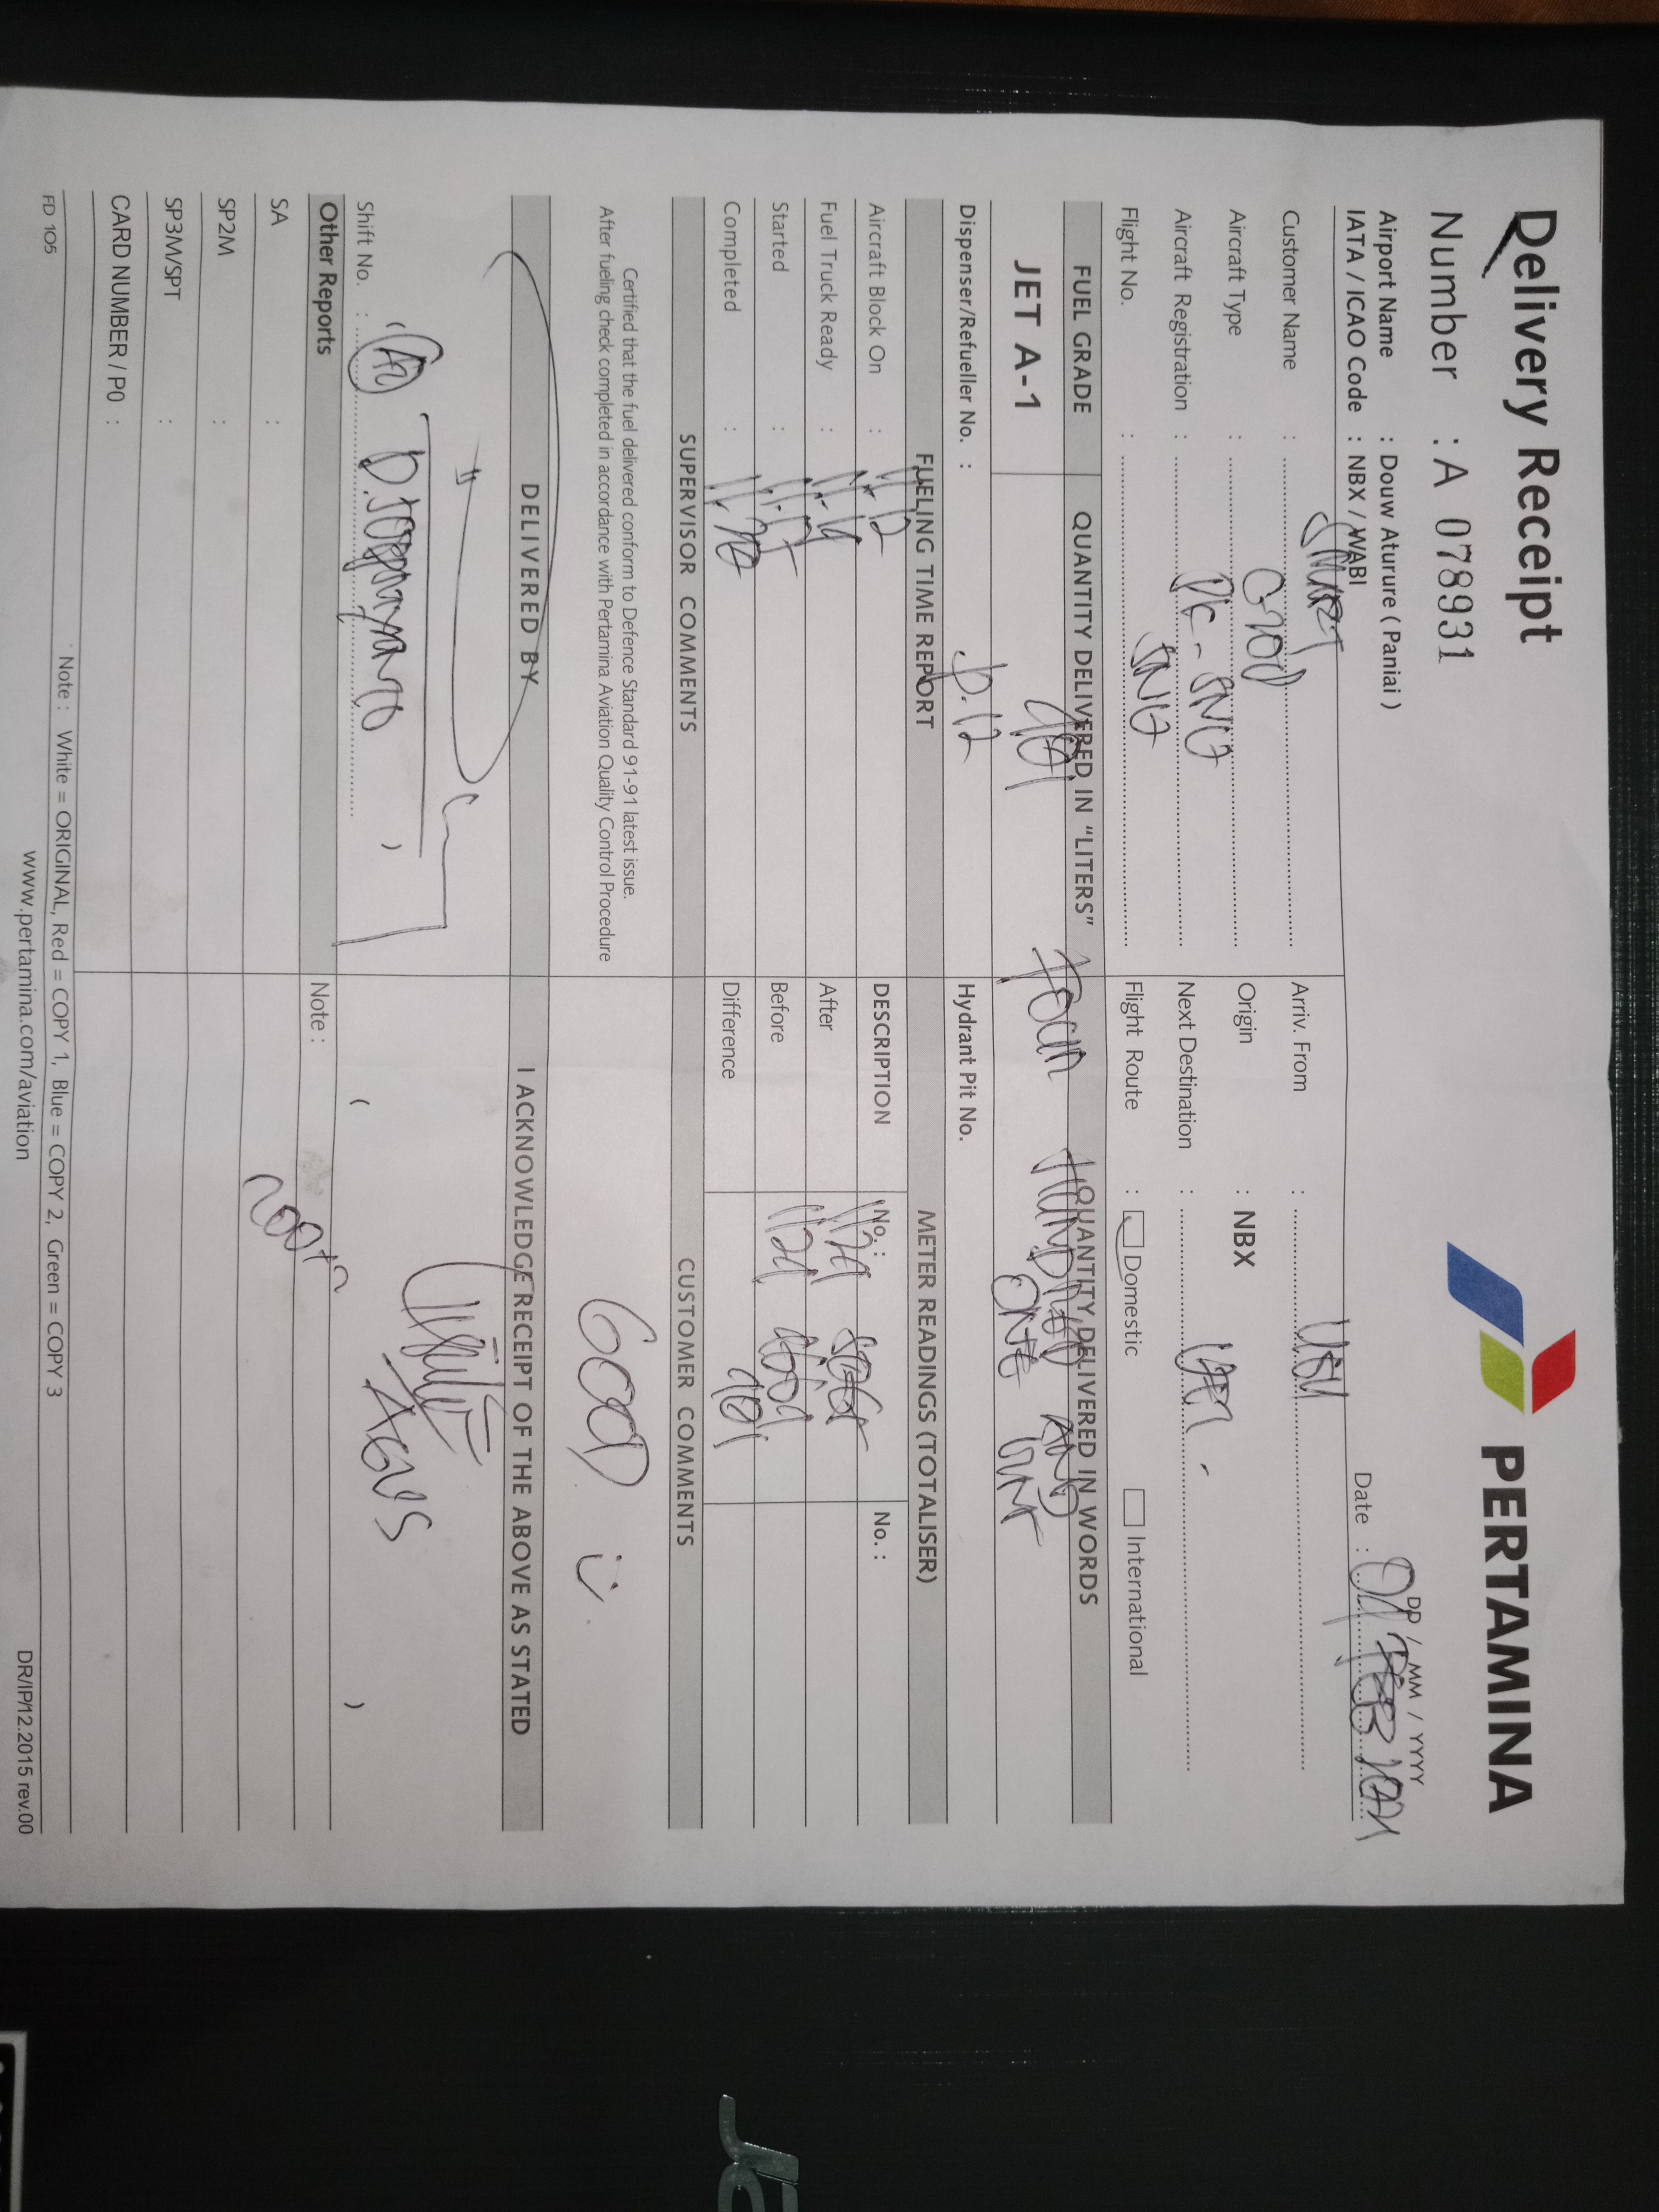 Delivery Receipt
PERTAMINA
Number : A 078931
DD / MM / YYYY
Airport Name : Douw Aturure ( Paniai )
Date :
IATA / ICAO Code : NBX / WABI
Customer Name : SMART
Arriv. From :
Aircraft Type :
Origin : NBX
Aircraft Registration : PK - SNG
Next Destination :
Flight No. : SNG
Flight Route : Domestic International
FUEL GRADE
QUANTITY DELIVERED IN "LITERS"
QUANTITY DELIVERED IN WORDS
JET A-1
401
FOUR HUNDRED AND
ONE
Dispenser/Refueller No. :
Hydrant Pit No.
FUELING TIME REPORT
METER READINGS (TOTALISER)
Aircraft Block On : 11.12
DESCRIPTION
No. :
No. :
Fuel Truck Ready : 11.14
After
Started : 11.17
Before
Completed :
Difference 401
SUPERVISOR COMMENTS
CUSTOMER COMMENTS
Certified that the fuel delivered conform to Defence Standard 91-91 latest issue.
After fueling check completed in accordance with Pertamina Aviation Quality Control Procedure
GOOD :)
DELIVERED BY
I ACKNOWLEDGE RECEIPT OF THE ABOVE AS STATED
AGUS
Shift No. :
( )
Other Reports
Note :
SA :
SP2M :
SP3M/SPT :
CARD NUMBER / PO :
Note : White = ORIGINAL, Red = COPY 1, Blue = COPY 2, Green = COPY 3
FD 105
www.pertamina.com/aviation
DR/IP/12.2015 rev.00